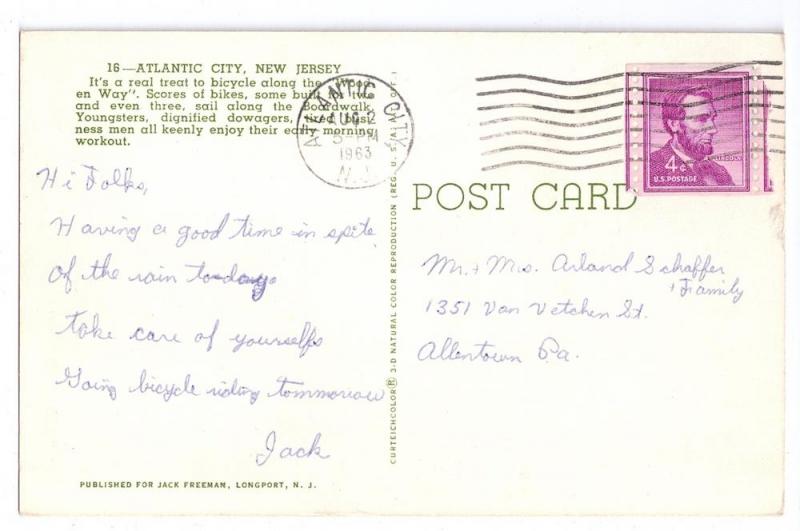 16—ATLANTIC CITY, NEW JERSEY
It's a real treat to bicycle along the "Wood-
en Way". Scores of bikes, some built for two
and even three, sail along the Boardwalk.
Youngsters, dignified dowagers, tired busi-
ness men all keenly enjoy their early morning
workout.
Hi Folks,
Having a good time in spite
of the rain today
take care of yourselfs
Going bicycle riding tommorow
Jack
PUBLISHED FOR JACK FREEMAN, LONGPORT, N. J.
CURTEICHCOLOR® 3-D NATURAL COLOR REPRODUCTION (REG. U. S. A.
ATLANTIC CITY
AUG 2
5 PM
1963
N.J.
4¢
U.S. POSTAGE
LINCOLN
POST CARD
Mr. + Mrs. Arland Schaffer
+ Family
1351 Van Vetchen St.
Allentown Pa.